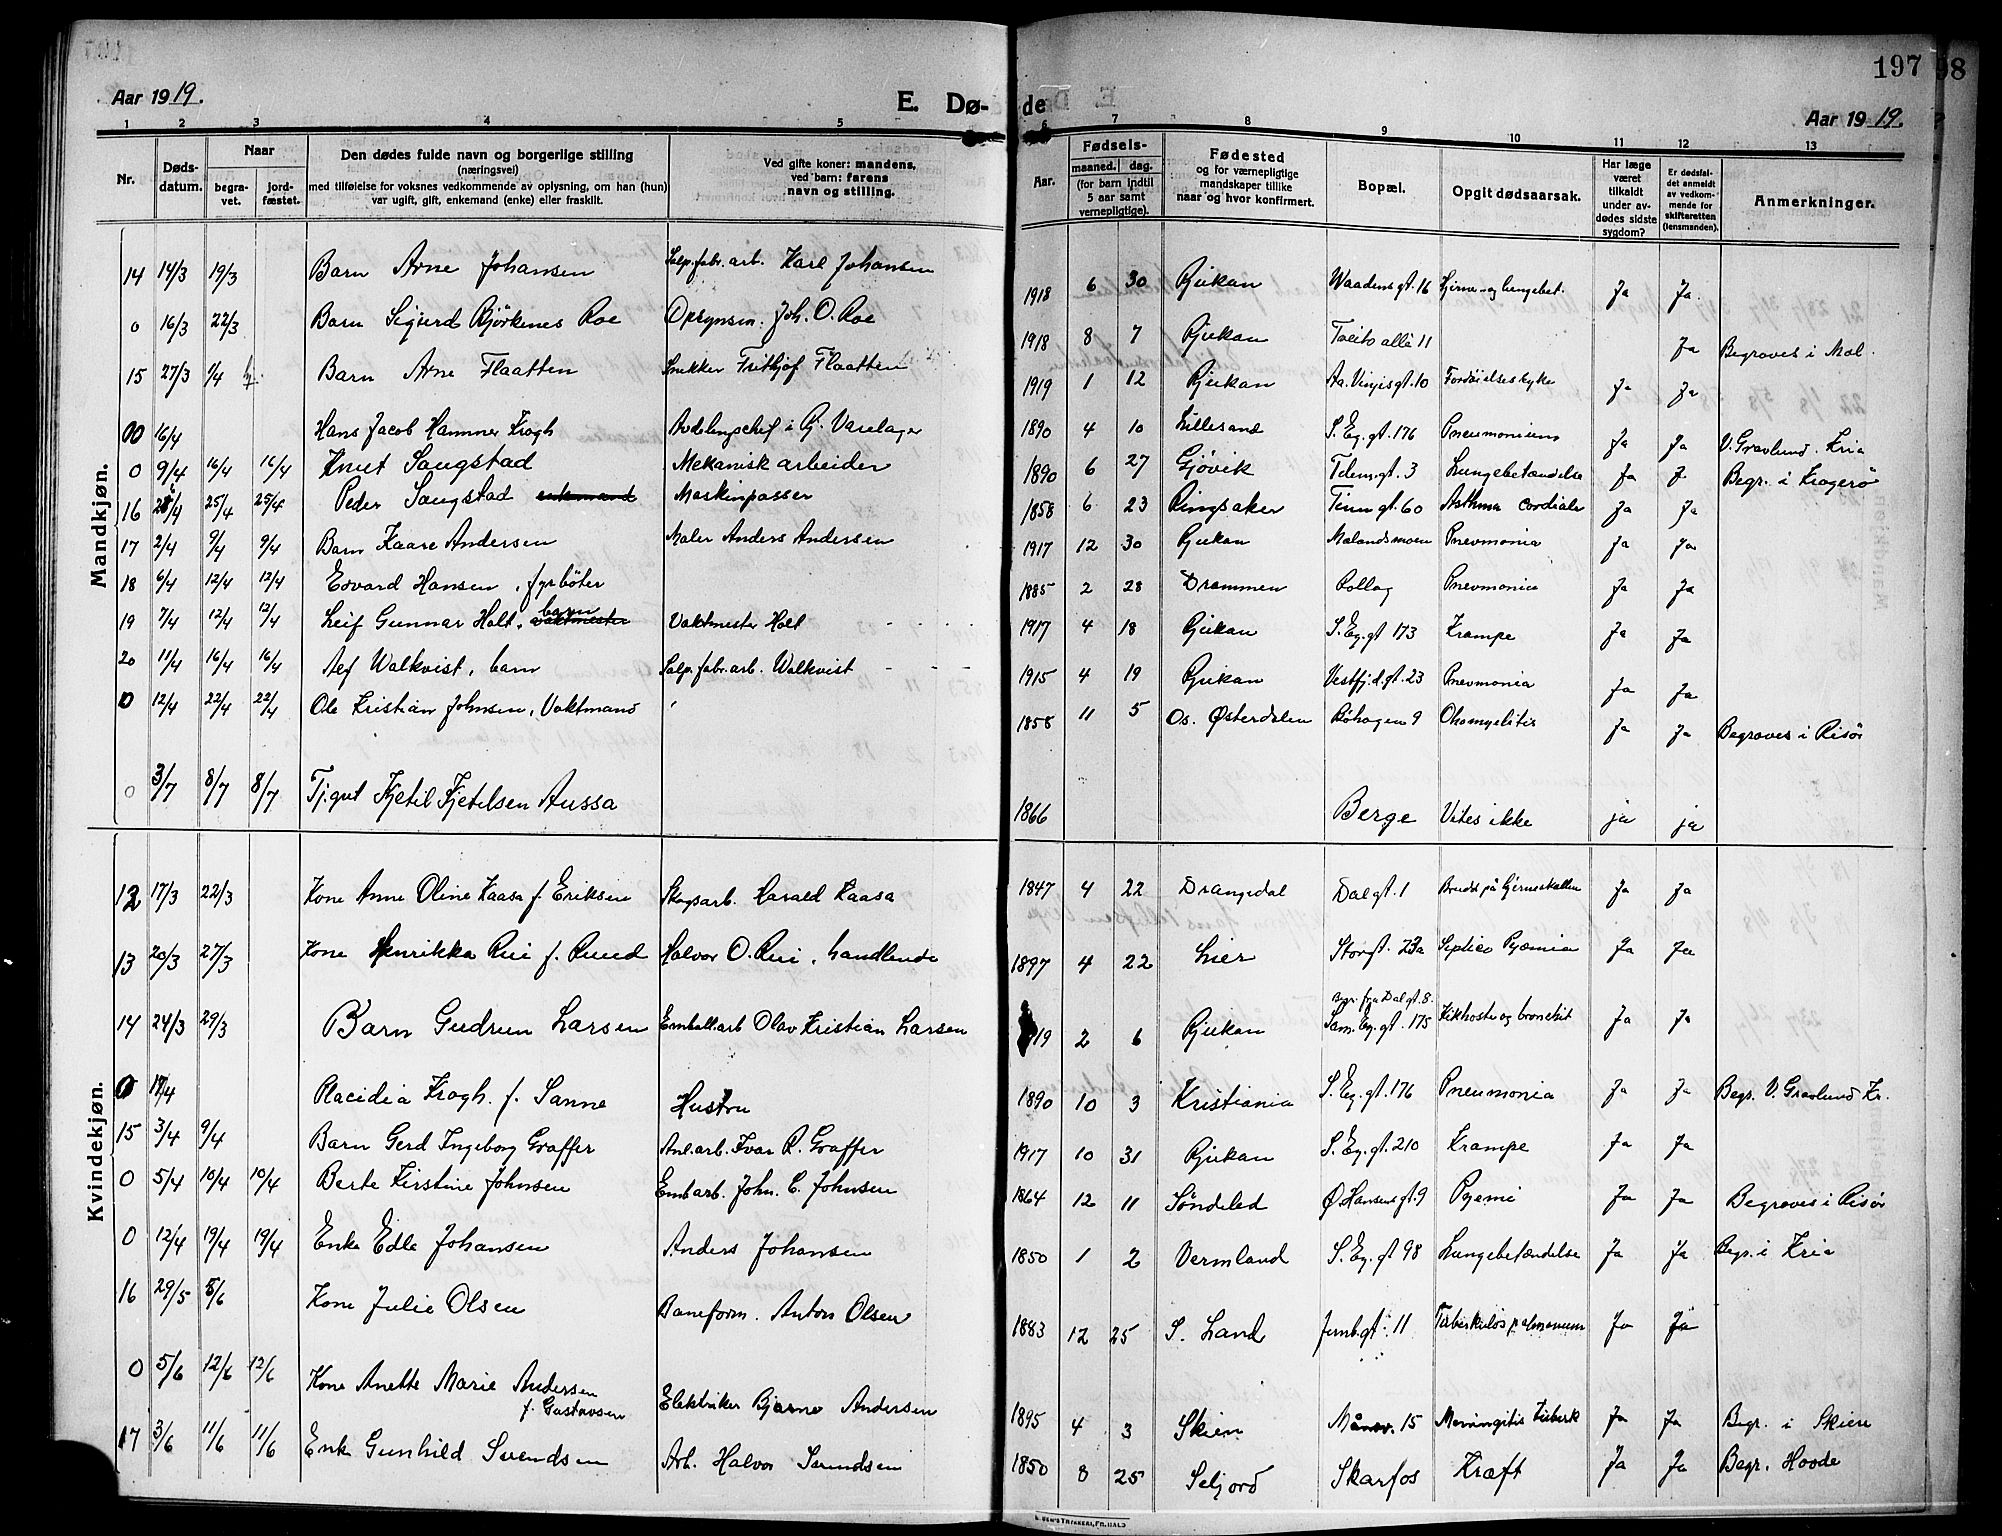 197 98
Aar 1919.
E. Dø- de
Aar 1919.
1 2 3 4 5 6 7 8 9 10 11 12 13
Nr. Døds-datum. Naar begra-vet. jord-fæstet. Den dødes fulde navn og borgerlige stilling (næringsvei) med tilføielse for voksnes vedkommende av oplysning, om han (hun) var ugift, gift, enkemand (enke) eller fraskilt. Ved gifte koner: mandens, ved barn: farens navn og stilling. Aar. Fødsels- maaned. dag. (for barn indtil 5 aar samt vernepligtige). Fødested og for værnepligtige mandskaper tillike naar og hvor konfirmert. Bopæl. Opgit dødsaarsak. Har læge været tilkaldt under av-dødes sidste sygdom? Er dødsfal-det anmeldt av vedkom-mende for skifteretten (lensmanden). Anmerkninger.
Mandkjøn.
14 14/3 19/3 Barn Arne Johansen Salp.fabr.arb. Karl Johansen 1918 6 30 Rjukan Waadensgt. 16 Hjerne- og lungebet. Ja Ja.
0 16/3 22/3 Barn Sigurd Bjørkenes Roe Opsynsm. Joh. O. Roe 1918 8 7 Rjukan Tveits allé 11 Ja Begraves i Mæl.
15 27/3 1/4 Barn Arne Flaatten Snekker Frithjof Flaatten 1919 1 12 Rjukan Aa. Vinjisgt. 10 Ja Ja
16/4 Hans Jacob Hammer Krogh Avdelingschef i Rj. Varelager 1890 4 10 Lillesand S. Eg. gt. 176 Ja Ja V. Gravlund. Kria
0 9/4 16/4 16/4 Knut Saugstad Mekanisk arbeider 1890 6 27 Gjøvik Telem.gt. 3 Lungebetændelse Ja J. Begr. i Kragerø
16 25/4 25/4 Peder Saugstad enkemand Maskinpasser 1858 6 23 Ringsaker Tinngt. 60 Asthma cordiale Ja Ja
17 2/4 9/4 9/4 Barn Kaare Andersen Maler Anders Andersen 1917 12 30 Rjukan Mælandsmoen Pnevmonia Ja Ja
18 6/4 12/4 12/4 Edvard Hansen, fyrbøter 1885 2 28 Drammen Rollag Pnevmonia Ja Ja
19 7/4 12/4 12/4 Leif Gunnar Holt, vaktmester barn Vaktmester Holt 1917 4 18 Rjukan S. Eg. gt 173 Krampe Ja Ja
20 11/4 16/4 16/4 Alf Walkvist, barn Salp. fabr. arb. Walkvist 1915 4 19 Rjukan Vestfj.d.gt. 23 Pnevmonia Ja Ja
0 12/4 22/4 22/4 Ole Kristian Johnsen, Vaktmand 1858 11 5 Os. Østerdalen Bøhagen 9 Ja Ja Begraves i Risør
0 3/7 8/7 8/7 Tj.gut Kjetil Kjetilsen Aussa 1866 Berge Vites ikke ja ja
Kvindekjøn.
12 17/3 22/3 Kone Anne Oline Kaasa f. Eriksen Skogsarb. Harald Kaasa 1847 4 22 Drangedal Dalgt. 1 Brudd på hjerneskallen Ja Ja
13 20/3 27/3 Kone Henrikka Rui f. Ruud Halvor O. Rui, handlende 1897 4 22 Lier Storgt. 23a Septico Pyæmia Ja Ja
14 24/3 29/3 Barn Gudrun Larsen Emball.arb Olav Kristian Larsen 1919 2 6 Rjukan begr. fra Dalgt. 8. Sam. Eg. gt. 175 Kikhoste og bronchit Ja Ja
0 17/4 Placidia Krogh. f. Sanne Hustru 1890 10 3 Kristiania S. Eg. gt. 176 Pneumonia Ja Ja Begr. V. Gravlund Kr.
15 3/4 9/4 Barn Gerd Ingeborg Graffer Anl.arb. Ivar R. Graffer 1917 10 31 Rjukan S. Eg. gt. 210 Krampe Ja Ja
0 5/4 10/4 10/4 Berte Kirstine Johnsen Emb.arb. John. C. Johnsen 1864 12 11 Søndeled Ø. Hansensgt. 9 Pyæmi Ja Ja Begraves i Risør
0 12/4 19/4 19/4 Enke Edle Johansen Anders Johansen 1850 1 2 Vermland S. Eg. gt 98 Lungebetændelse Ja Ja Begr. i Kria
16 29/5 5/6 Kone Julie Olsen Baneform. Anton Olsen 1883 12 25 S. Land Jernb.gt. 11 Tuberkulos pulmonum Ja Ja
0 5/6 12/6 12/6 Kone Anette Marie Andersen f. Gustavsen Elektriker Bjarne Andersen 1895 4 3 Skien Månev. 15 Meningitis tuberk Ja Ja Begr. i Skien
17 3/6 11/6 11/6 Enke Gunhild Svendsen Arb. Halvor Svendsen 1850 8 25 Seljord Skarfos Kræft Ja Ja Begr. Hovde